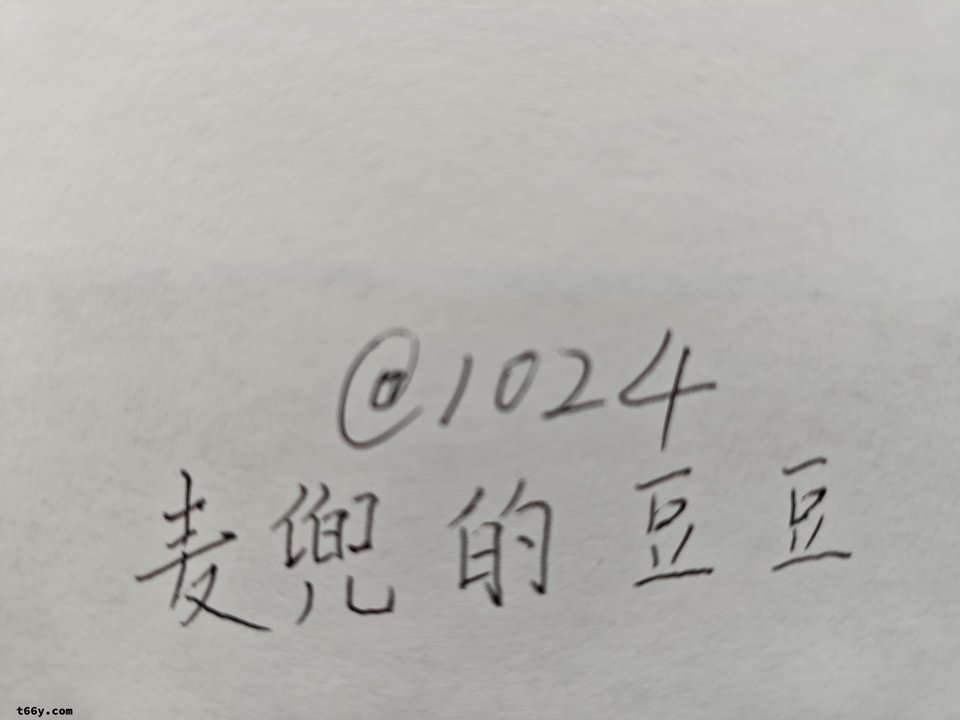 @1024
麦兜的豆豆
t66y.com